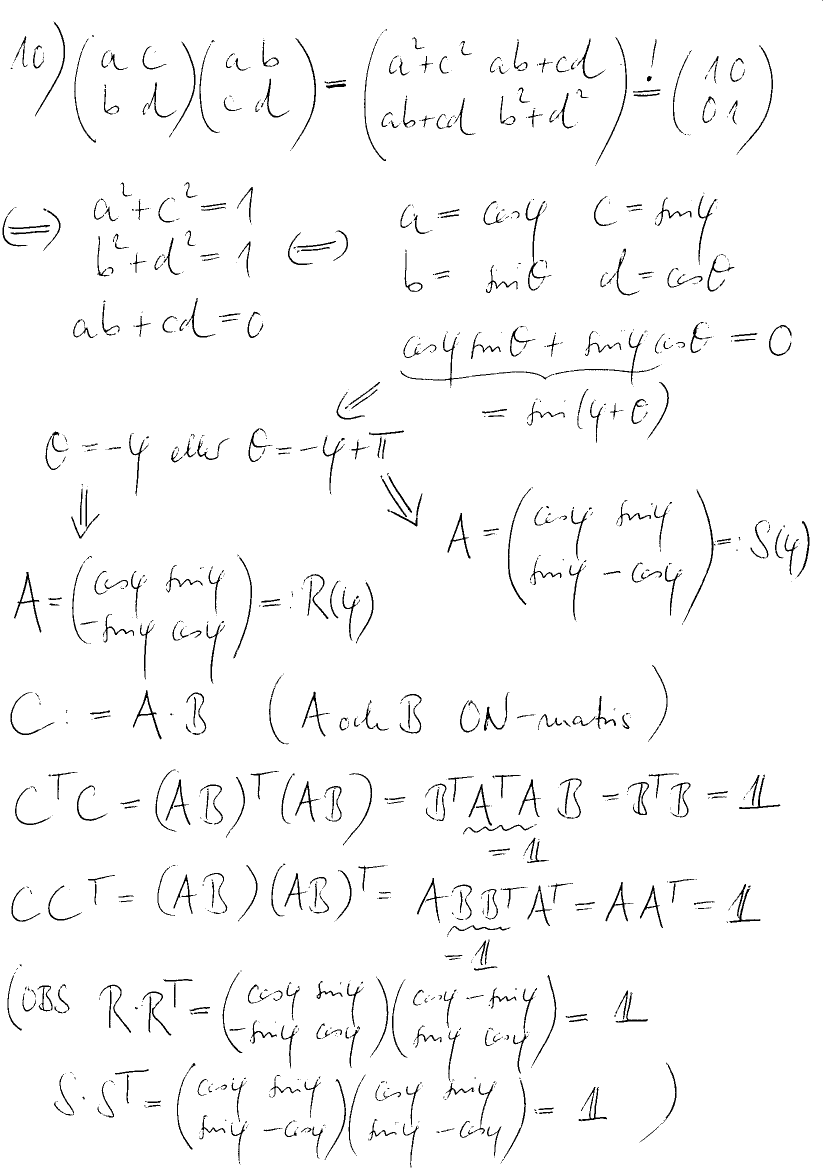 10) (a c / b d)(a b / c d) = (a²+c² ab+cd / ab+cd b²+d²) =! (1 0 / 0 1)
⇔ a²+c²=1 ⇔ a = cosφ c = sinφ
b²+d²=1 b = sinθ d = cosθ
ab+cd=0 cosφ sinθ + sinφ cosθ = 0
⇙ = sin(φ+θ)
θ=-φ eller θ=-φ+π
⇓ ⇘ A = (cosφ sinφ / sinφ -cosφ) =: S(φ)
A = (cosφ sinφ / -sinφ cosφ) =: R(φ)
C := A·B (A och B ON-matris)
CᵀC = (AB)ᵀ(AB) = BᵀAᵀA B = BᵀB = 𝟙
= 𝟙
CCᵀ = (AB)(AB)ᵀ = A B Bᵀ Aᵀ = AAᵀ = 𝟙
= 𝟙
(OBS R·Rᵀ = (cosφ sinφ / -sinφ cosφ)(cosφ -sinφ / sinφ cosφ) = 𝟙
S·Sᵀ = (cosφ sinφ / sinφ -cosφ)(cosφ sinφ / sinφ -cosφ) = 𝟙 )